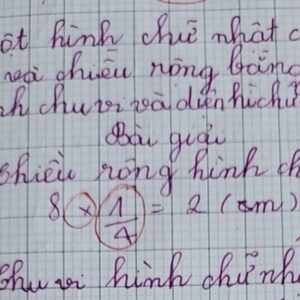 ột hình chữ nhật c
và chiều rộng bằng
nh chu vi và diện hích
Bài giải
Chiều rộng hình ch
8 × 1/4 = 2 (cm)
Chu vi hình chữ nh